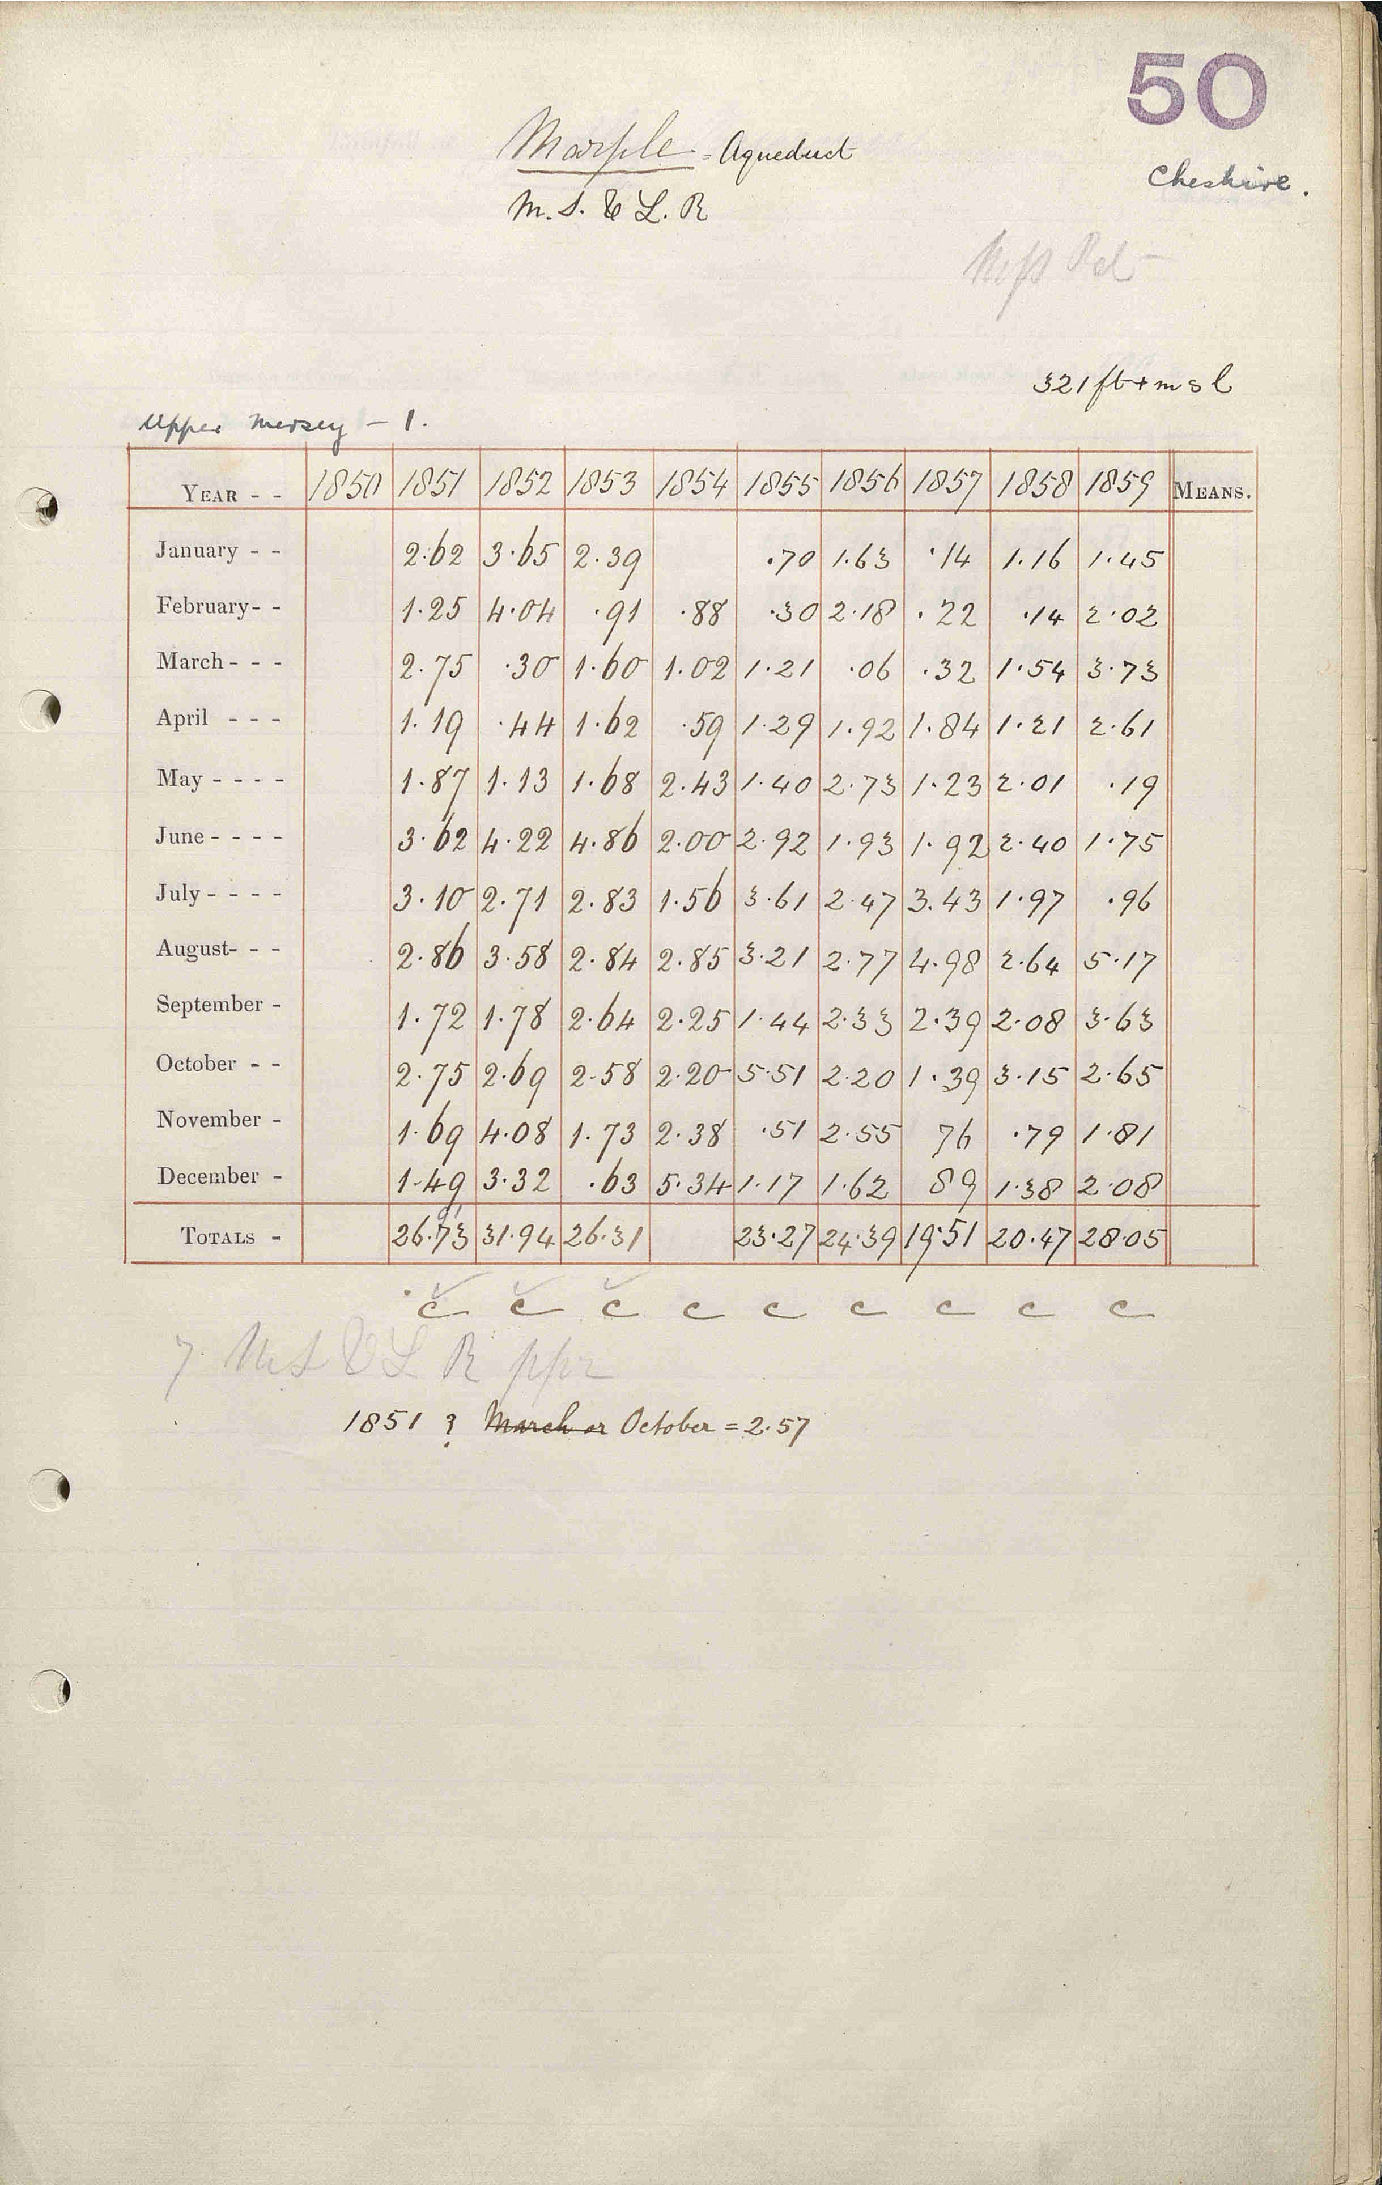 50
Marple - Aqueduct
Cheshire.
M. S. & L. R
321 ft + msl
Upper Mersey - 1.
YEAR - - 1850 1851 1852 1853 1854 1855 1856 1857 1858 1859 MEANS.
January - - 2.62 3.65 2.39 .70 1.63 .14 1.16 1.45
February- - 1.25 4.04 .91 .88 .30 2.18 .22 .14 2.02
March - - - 2.75 .30 1.60 1.02 1.21 .06 .32 1.54 3.73
April - - - 1.19 .44 1.62 .59 1.29 1.92 1.84 1.21 2.61
May - - - - 1.87 1.13 1.68 2.43 1.40 2.73 1.23 2.01 .19
June - - - - 3.62 4.22 4.86 2.00 2.92 1.93 1.92 2.40 1.75
July - - - - 3.10 2.71 2.83 1.56 3.61 2.47 3.43 1.97 .96
August- - - 2.86 3.58 2.84 2.85 3.21 2.77 4.98 2.64 5.17
September - 1.72 1.78 2.64 2.25 1.44 2.33 2.39 2.08 3.63
October - - 2.75 2.69 2.58 2.20 5.51 2.20 1.39 3.15 2.65
November - 1.69 4.08 1.73 2.38 .51 2.55 76 .79 1.81
December - 1.49 3.32 .63 5.34 1.17 1.62 89 1.38 2.08
TOTALS - 26.73 31.94 26.31 23.27 24.39 19.51 20.47 28.05
c c c c c c c c c
7 M S & L R ppr
1851 ? March or October = 2.57